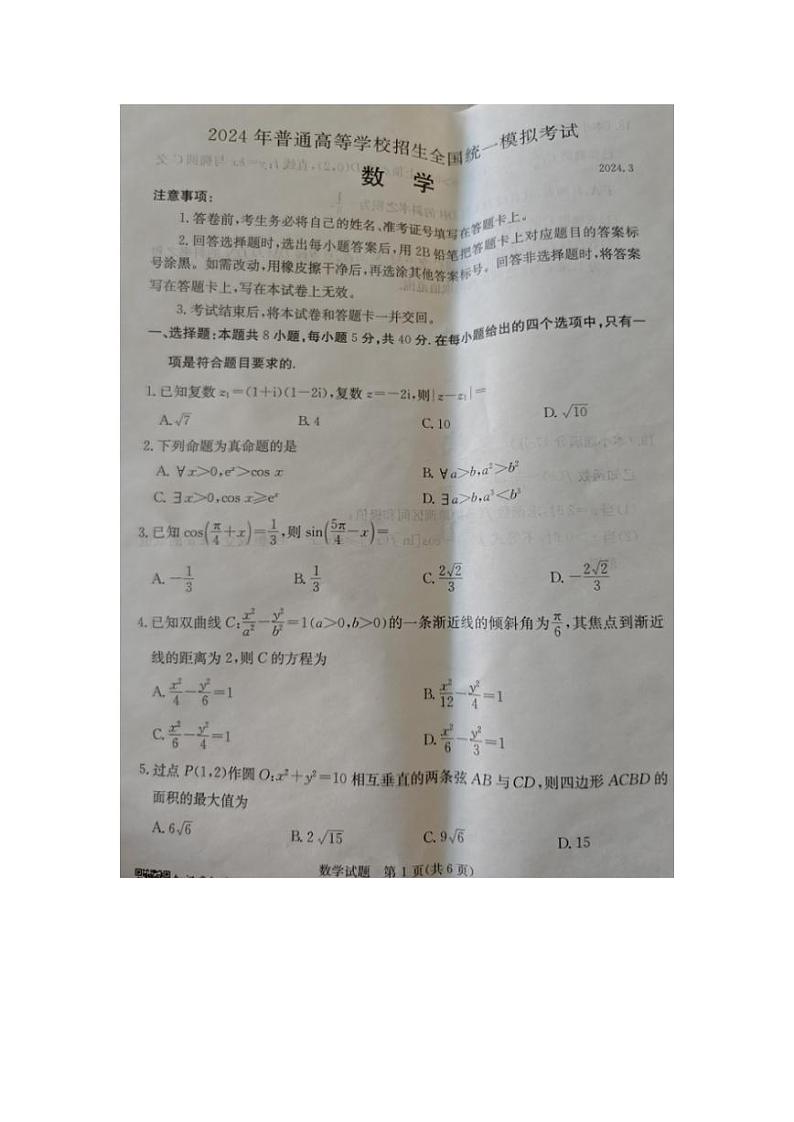 2024年普通高等学校招生全国统一模拟考试
2024.3
数 学
注意事项:
1.答卷前,考生务必将自己的姓名、准考证号填写在答题卡上。
2.回答选择题时,选出每小题答案后,用2B铅笔把答题卡上对应题目的答案标
号涂黑。如需改动,用橡皮擦干净后,再选涂其他答案标号。回答非选择题时,将答案
写在答题卡上,写在本试卷上无效。
3.考试结束后,将本试卷和答题卡一并交回。
一、选择题:本题共8小题,每小题5分,共40分.在每小题给出的四个选项中,只有一
项是符合题目要求的.
1.已知复数z₁=(1+i)(1-2i),复数z=-2i,则|z-z₁|=
A.√7 B.4 C.10 D.√10
2.下列命题为真命题的是
A.∀x>0,eˣ>cos x B.∀a>b,a²>b²
C.∃x>0,cos x≥eˣ D.∃a>b,a³<b³
3.已知cos(π/4+x)=1/3,则sin(5π/4-x)=
A.-1/3 B.1/3 C.2√2/3 D.-2√2/3
4.已知双曲线C:x²/a²-y²/b²=1(a>0,b>0)的一条渐近线的倾斜角为π/6,其焦点到渐近
线的距离为2,则C的方程为
A.x²/4-y²/6=1 B.x²/12-y²/4=1
C.x²/6-y²/4=1 D.x²/6-y²/3=1
5.过点P(1,2)作圆O:x²+y²=10相互垂直的两条弦AB与CD,则四边形ACBD的
面积的最大值为
A.6√6 B.2√15 C.9√6 D.15
数学试题 第1页(共6页)